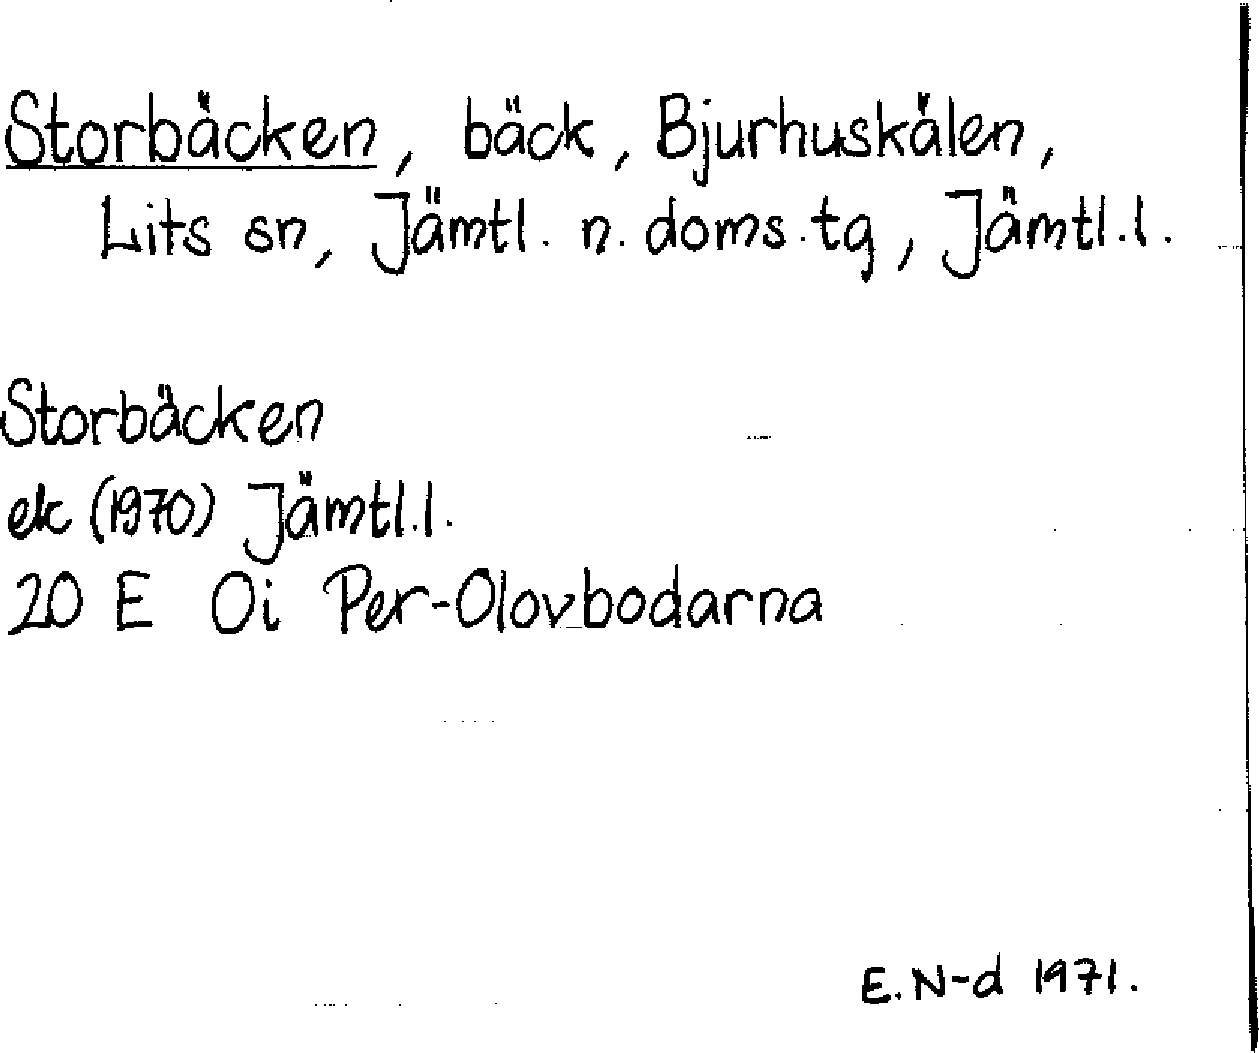 Storbäcken, bäck, Bjurhuskälen,
Lits sn, Jämtl. n. doms.tg, Jämtl.l.
Storbäcken
ek (1970) Jämtl.l.
20 E 0i Per-Olovbodarna
E. N-d 1971.